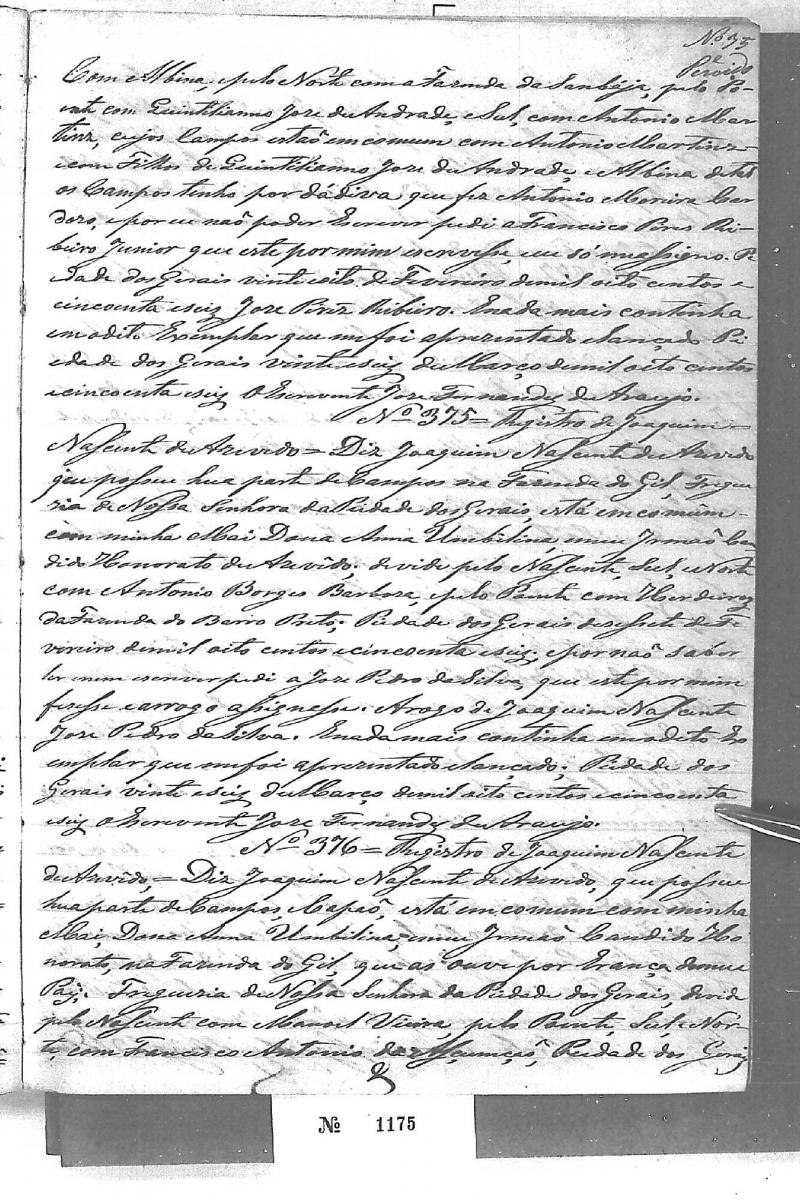 Com Albina, e pelo Norte com a Fazenda da Sanbéja, pelo Po-
ente com Quintilianno Joze de Andrade, e Sul, com Antonio Mar
tinz, cujos Campos estaõ em comum com Antonio Martinz
e com Filhos de Quintilianno Joze de Andrade, e Albina
os Campos tenho por dádiva que fez Antonio Moreira Car
dozo, e por eu naõ poder Escrever pedi a Francisco Peres Ri-
beiro Junior que este por mim escrevesse, eu só me assigno. Pi
dade dos Gerais vinte oito de Fevereiro de mil oito centos e
cincoenta e seiz Joze Perez Ribeiro. E nada mais continha
em o dito Exemplar que me foi aprezentado e lançado Pi
edade dos Gerais vinte e seiz de Março de mil oito centos
e cincoenta e seiz O Escrevente Joze Fernandez de Araujo.
Nº 375 = Registro de Joaquim =
Nascente de Azevedo = Diz Joaquim Nascente de Azevedo
que possue hua parte de Campos na Fazenda do Gil, Fregue
zia de Nossa Senhora da Piedade dos Gerais, está em comum-
com minha Mai Dona Anna Umbilina, e meu Irmaõ Can
dido Honorato de Azevedo, devide pelo Nascente, Sul, e Norte
com Antonio Borges Barboza, e pelo Poente com Herdeiroz
da Fazenda do Barro Preto; Piedade dos Gerais desesete de Fe
vereiro de mil oito centos e cincoenta e seiz, e por naõ saber
ler nem escrever pedi a Joze Pedro da Silva, que este por mim
fizesse e arrogo assignesse. Arogo de Joaquim Nascente
Joze Pedro da Silva. E nada mais continha em o dito Ex
emplar que me foi aprezentado e lançado; Piedade dos
Gerais vinte e seiz de Março de mil oito centos e cincoenta
e seiz O Escrevente Joze Fernandez de Araujo.
Nº 376 = Registro de Joaquim Nascente
de Azevedo, = Diz Joaquim Nascente de Azevedo, que possue
hua parte de Campos e Capaõ, está em comum com minha
Mai, Dona Anna Umbilina, e meu Irmaõ Candido Ho
norato, na Fazenda do Gil, que as ouve por Erança de meu
Pay. Freguezia de Nossa Senhora da Piedade dos Gerais, devide
pelo Nascente com Manoel Vieira, pelo Poente, Sul e Nor-
te, com Francisco Antonio de Assumçaõ, Piedade dos Geraiz
Nº 1175